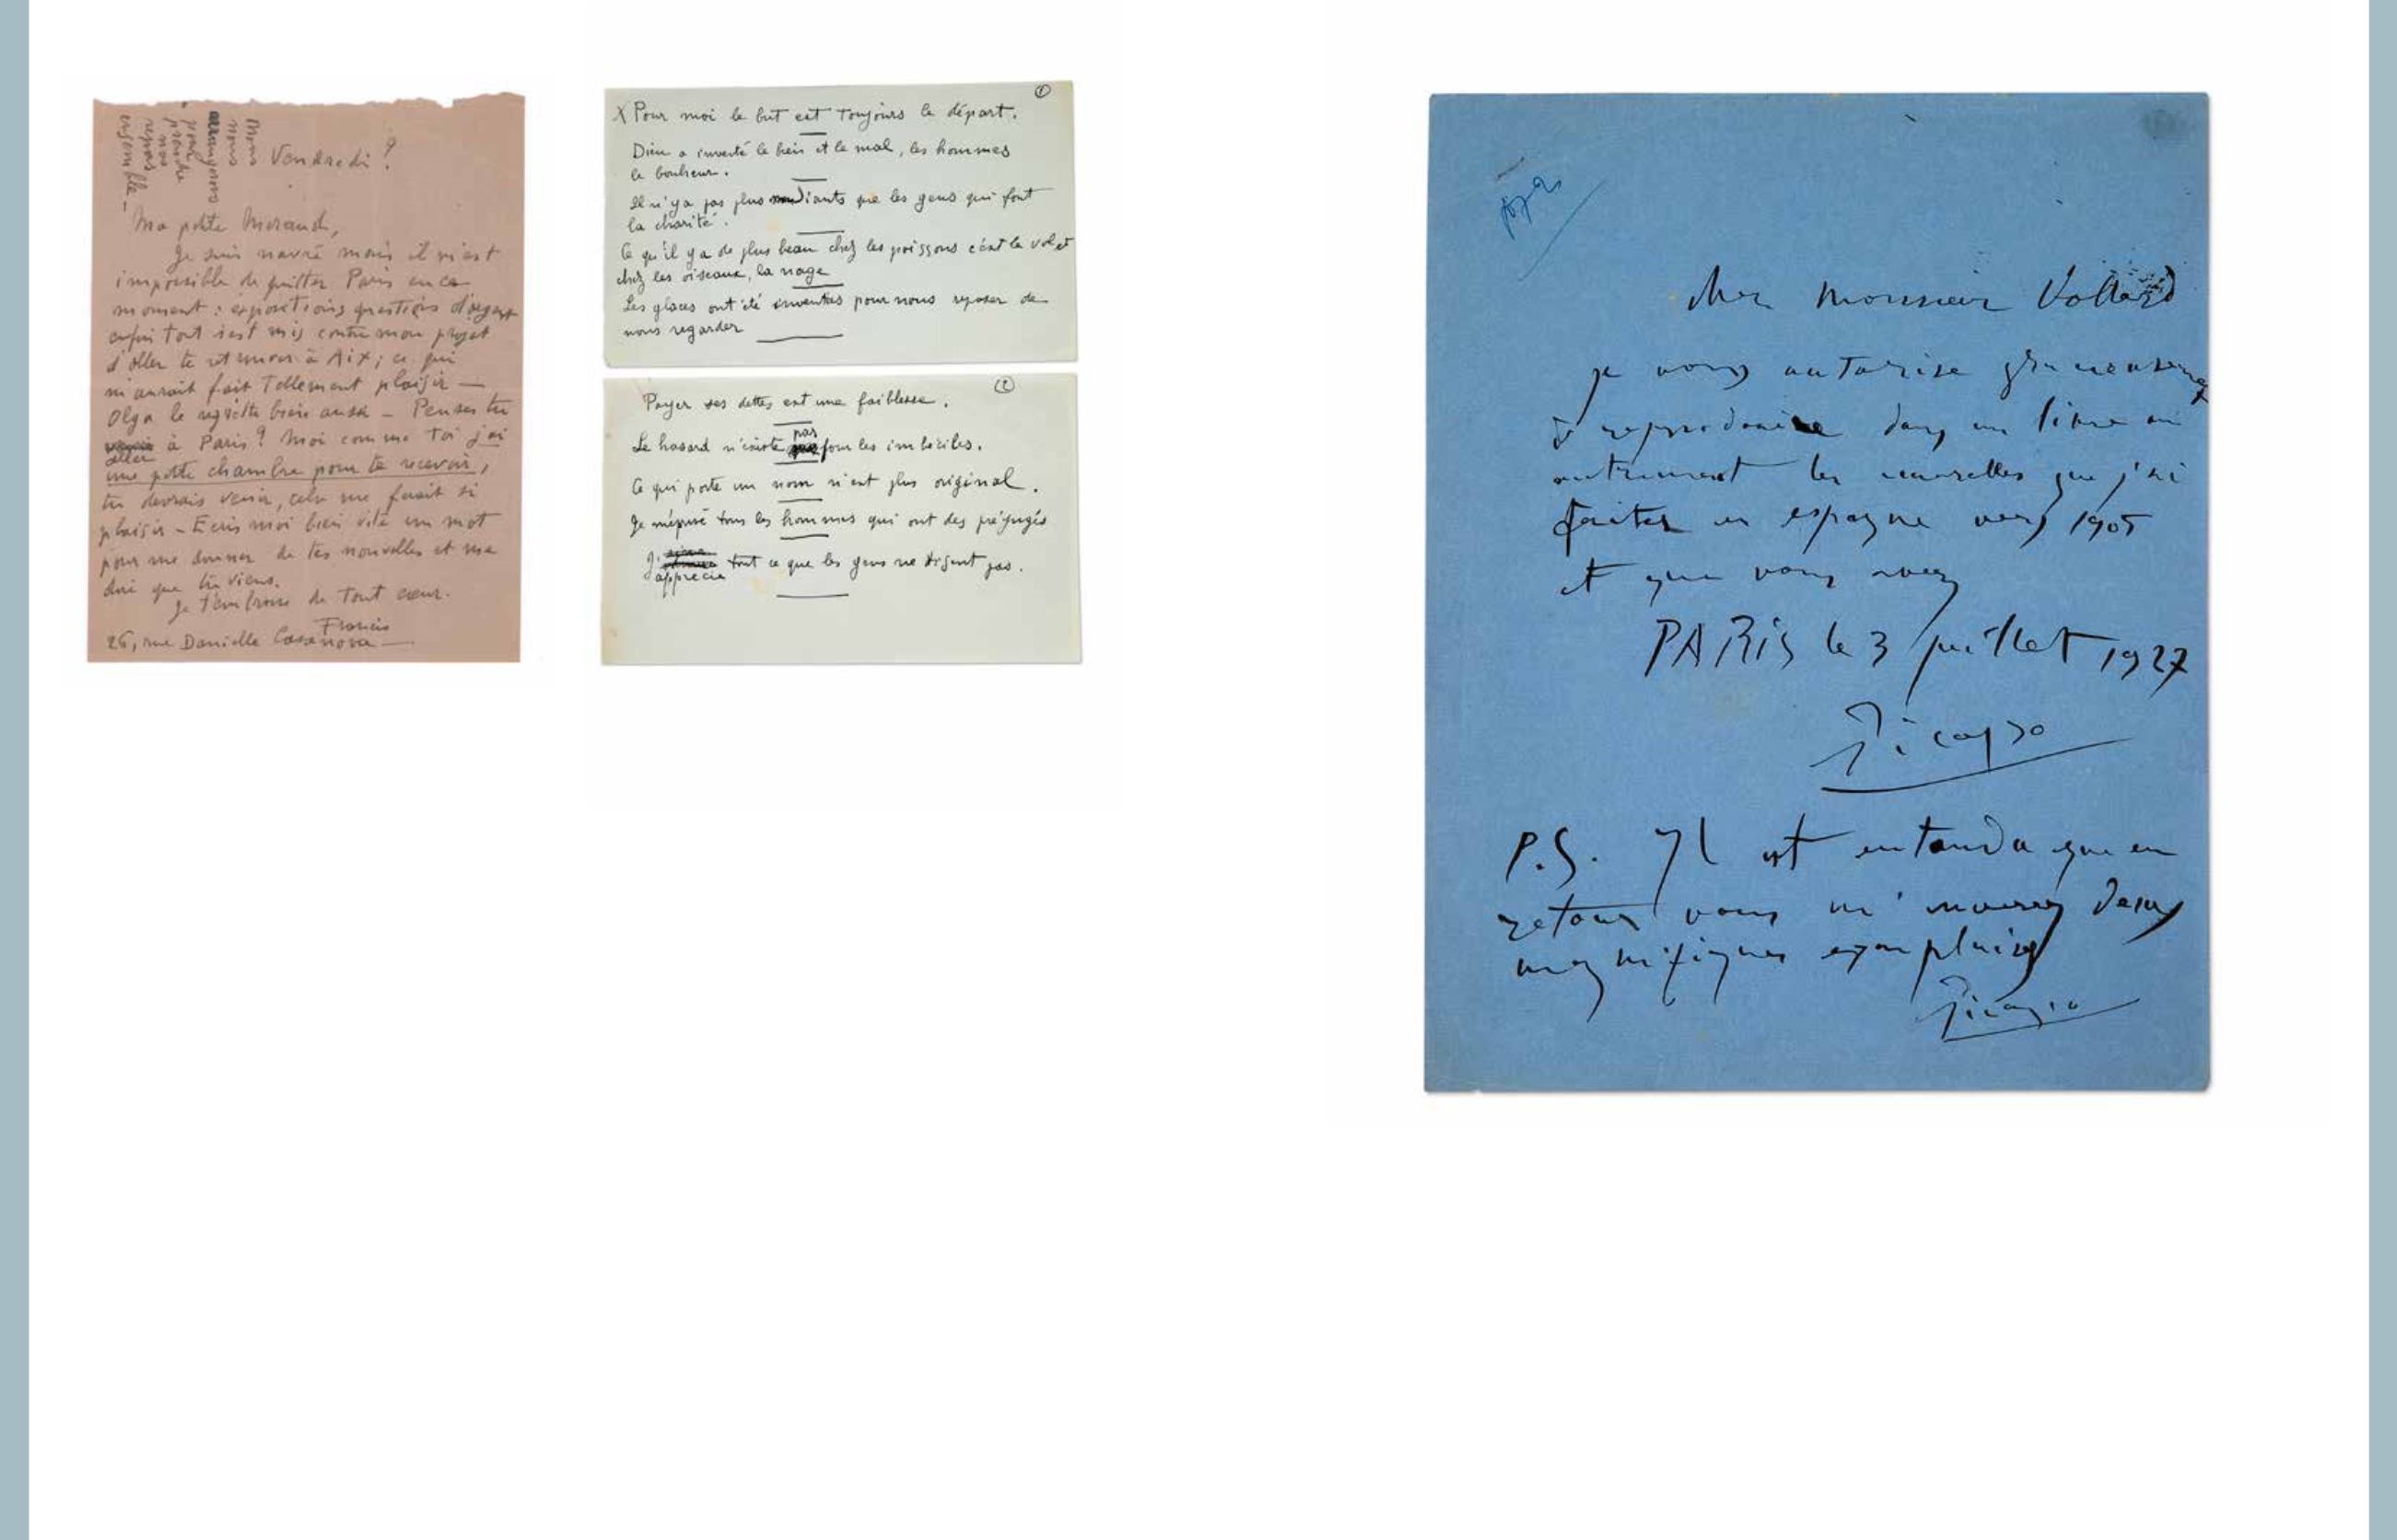 Vendredi ?
Ma petite Morand,
Je suis navré mais il m'est
impossible de quitter Paris en ce
moment : expositions questions d'argent
enfin tout s'est mis contre mon projet
d'aller te retrouver à Aix ; ce qui
m'aurait fait tellement plaisir —
Olga le regrette bien aussi – Penses tu
aller à Paris ? Moi comme toi j'ai
une petite chambre pour te recevoir,
tu devrais venir, cela me ferait si
plaisir – Ecris moi bien vite un mot
pour me donner de tes nouvelles et me
dire que tu viens.
Je t'embrasse de tout cœur.
Francis
26, rue Danielle Casanova —
nous
pour
prendre
nos
repas
ensemble –
①
X Pour moi le but est toujours le départ.
Dieu a inventé le bien et le mal, les hommes
le bonheur.
Il n'y a pas plus mendiants que les gens qui font
la charité.
Ce qu'il y a de plus beau chez les poissons c'est le vol et
chez les oiseaux, la nage
Les glaces ont été inventées pour nous reposer de
nous regarder
②
Payer ses dettes est une faiblesse.
Le hasard n'existe pas pour les imbéciles.
Ce qui porte un nom n'est plus original.
Je méprise tous les hommes qui ont des préjugés
J'apprécie tout ce que les gens ne disent pas.
cher monsieur Vollard
je vous autorise gracieusement
de reproduire dans un livre ou
autrement les aquarelles que j'ai
faites en espagne vers 1905
et que vous avez
PARIS le 3 juillet 1927
Picasso
P.S. Il est entendu que en
retour vous m'enverrez deux
magnifiques exemplaires
Picasso